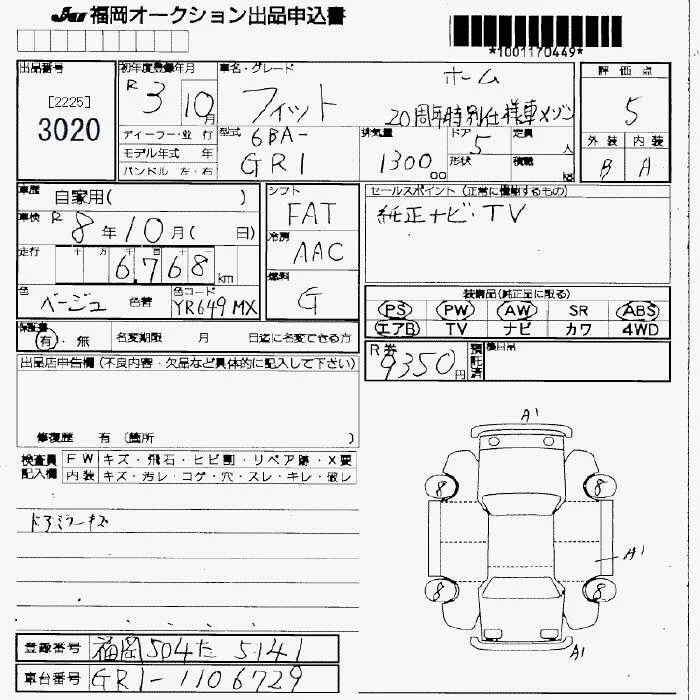 JU 福岡オークション出品申込書
*1001170449*
出品番号
[2225]
3020
初年度登録年月
R 3 10月
ディーラー・並 行
モデル年式 年
ハンドル 左・右
車名・グレード
ホーム
フィット
20周年特別仕様車メゾン
型式
6BA-
GR1
排気量
1300
00
ドア
5
形状
定員
人
積載
kg
評価点
5
外装 内装
B A
車歴
自家用( )
車検 R 8年10月( 日)
走行
十 万 千 百 十
6.768 km
色
ベージュ
色替
色コード
YR649MX
シフト
FAT
冷房
AAC
燃料
G
セールスポイント (正常に機動するもの)
純正ナビ・TV
装備品(純正品に限る)
PS PW AW SR ABS
エアB TV ナビ カワ 4WD
保証書
有・無
名変期限 月 日迄に名変できる方
R券
9350円
預託済
出品店申告欄 (不良内容・欠品など具体的に記入して下さい)
修復歴 有 (箇所 )
検査員
記入欄
FW キズ・飛石・ヒビ割・リペア跡・X要
内装 キズ・汚レ・コゲ・穴・スレ・キレ・破レ
ドアミラーキズ
A1
8 8
A1
8 8
A1
登録番号 福岡504た5141
車台番号 GR1-1106729